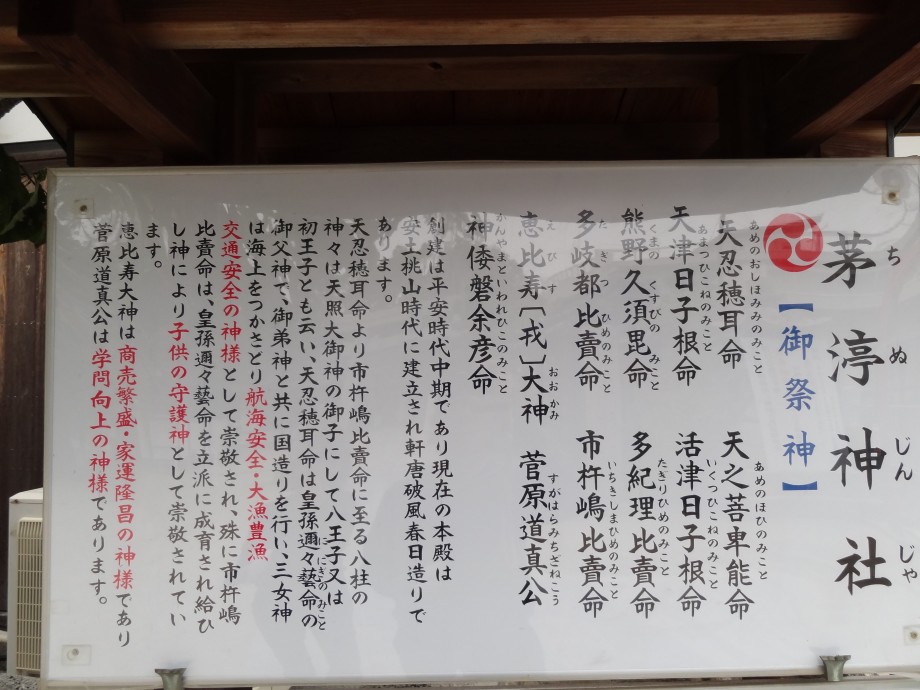 茅渟神社
ちぬじんじゃ
【御祭神】
天忍穂耳命　天之菩卑能命
あめのおしほみみのみこと　あめのほひのみこと
天津日子根命　活津日子根命
あまつひこねのみこと　いくつひこねのみこと
熊野久須毘命　多紀理比賣命
くまのくすびのみこと　たぎりひめのみこと
多岐都比賣命　市杵嶋比賣命
たぎつひめのみこと　いちきしまひめのみこと
恵比寿〔戎〕大神　菅原道真公
えびすおおかみ　すがはらみちざねこう
神倭磐余彦命
かんやまといわれひこのみこと
創建は平安時代中期であり現在の本殿は
安土桃山時代に建立され軒唐破風春日造りで
あります。
天忍穂耳命より市杵嶋比賣命に至る八柱の
神々は天照大御神の御子にして八王子又は
初王子とも云い、天忍穂耳命は皇孫邇々藝命の
ににぎのみこと
御父神で、御弟神と共に国造りを行い、三女神
は海上をつかさどり航海安全・大漁豊漁
交通安全の神様として崇敬され、殊に市杵嶋
比賣命は、皇孫邇々藝命を立派に成育され給ひ
し神により子供の守護神として崇敬されてい
ます。
恵比寿大神は商売繁盛・家運隆昌の神様であり
菅原道真公は学問向上の神様であります。